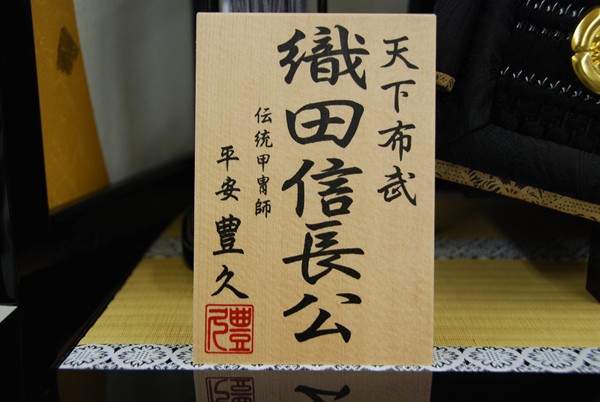 天下布武
織田信長公
伝統甲冑師
平安豊久
豊久